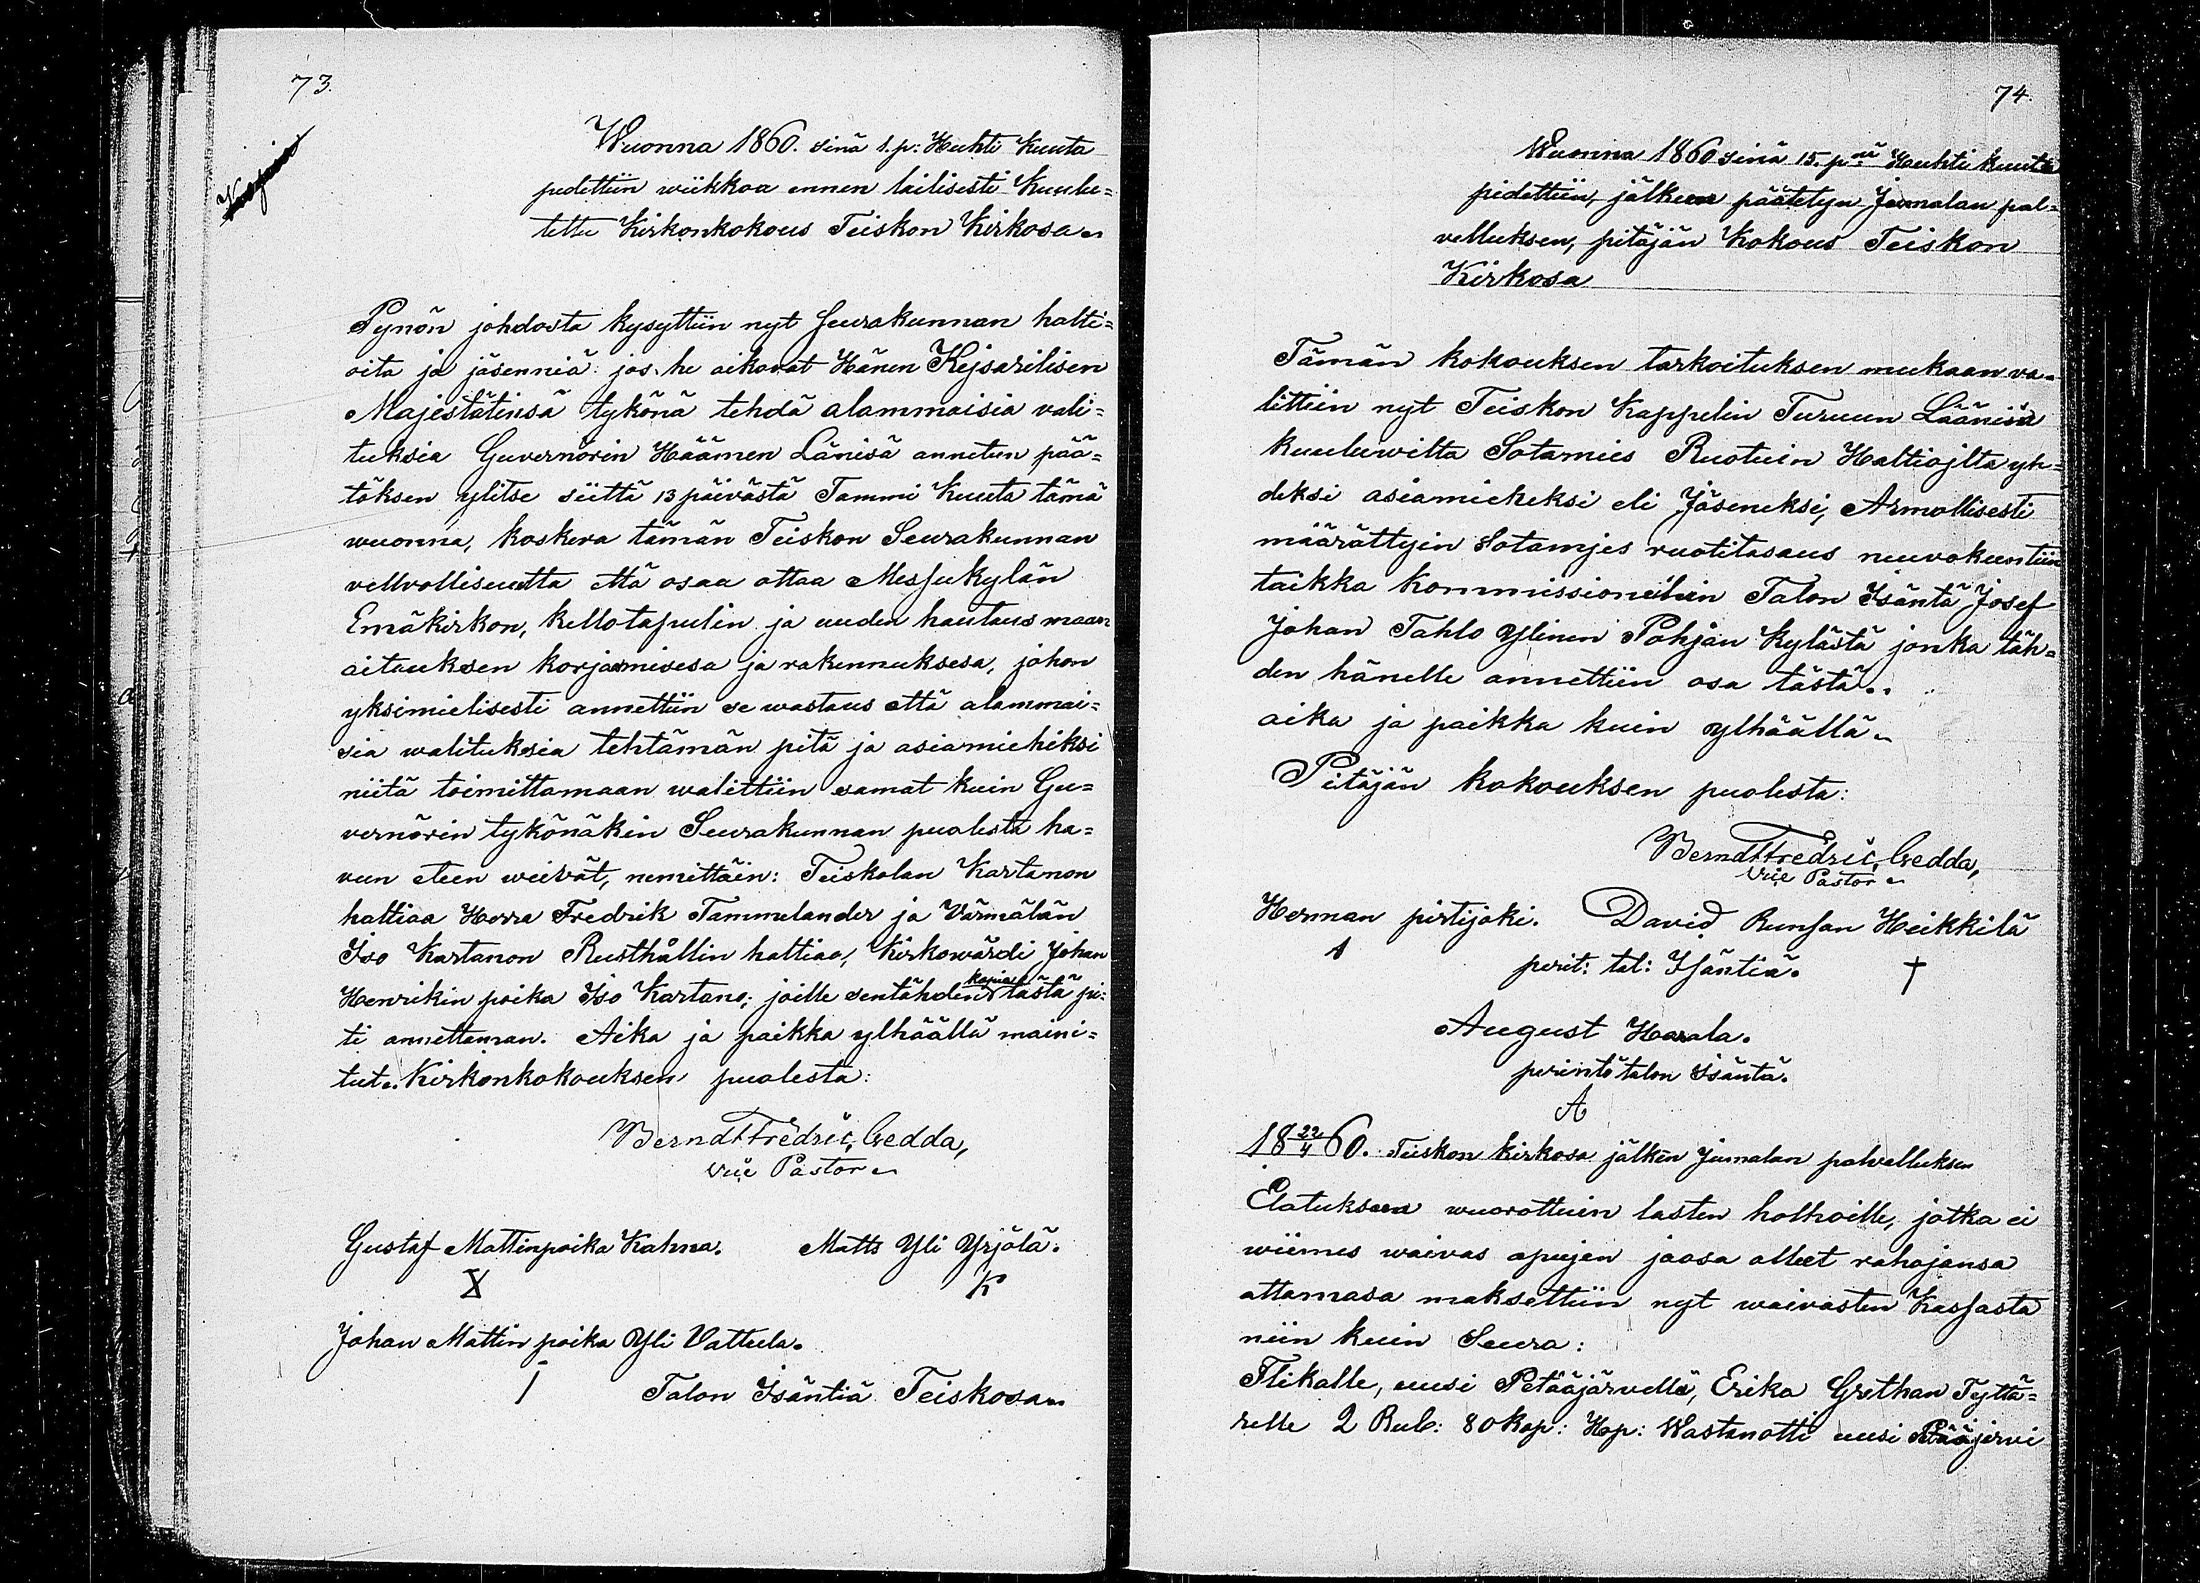 73.
Wuonna 1860. sinä 1. p: Huhti Kuuta
pidettiin wiikkoa ennen lailisesti Kuulu=
tettu Kirkonkokous Teiskon Kirkosa.
Pynön johdosta kysyttiin nyt Seurakunnan halti=
oita ja jäsenniä jos he aikovat Hänen Kejsarilisen
Majestätinsä tykönä tehdä alammaisia vali=
tuksia Guvernörin Häämen Länisä annetun pää=
töksen ylitse siittä 13 päivästä Tammi Kuuta tämä
wuonna, koskeva tämän Teiskon Seurakunnan
vellvollisuutta että osaa ottaa Messukylän
Emäkirkon, kellotapulin ja uuden hautausmaan
aitauksen korjaamisesa ja rakennuksesa, johon
yksimielisesti annettiin se wastaus että alammai=
sia walituksia tehtämän pitä ja asiamiehiksi
niitä toimittamaan walittiin samat kuin Gu=
vernörin tykönäkin Seurakunnan puolesta ha=
vun eteen weivät, nemittäin: Teiskolan Kartanon
haltiaa Herra Fredrik Tammelander ja Värmälän
Iso Kartanon Rusthållin haltiaa, Kirkowärdi Johan
Henrikin poika Iso Kartano; joille sentähden kopia tästä pi=
ti annettaman. Aika ja paikka ylhäällä maini=
tut. Kirkonkokouksen puolesta:
Berndt Fredric Gedda,
Vice Pastor
Gustaf Mattinpoika Kahna. Matts Yli Yrjölä.
X K
Johan Mattin poika Yli Vattula.
I Talon Isäntiä Teiskosa
74.
Wuonna 1860 sinä 15. p:nä Huhti kuuta
pidettiin, jälkeen päätetyn Jumalan pal=
velluksen, pitäjän Kokous Teiskon
Kirkosa
Tämän kokouksen tarkoituksen mukaan va=
littiin nyt Teiskon Kappelin Turuun Läänisä
kuuluwilta Sotamies Ruotuin Haltiojlta yh=
deksi asiamieheksi eli Jäseneksi, Armollisesti
määrättyin Sotamjes ruotitasaus neuvokuntiin
taikka Kommissioneihin Talon Isäntä Josef
Johan Tahlo Ylinen Pohjan Kylästä jonka täh=
den hänelle annettiin osa tästä.
aika ja paikka kuin ylhäällä.
Pitäjän kokouksen puolesta:
Berndt Fredric Gedda,
Vice Pastor
Herman pirtijoki. David Runsan Heikkilä
A perit: tal: Isäntiä. †
August Harala.
perintö talon Isäntä.
A
18 22/4 60. Teiskon kirkosa jälken Jumalan palvelluksen
Elatuksena wuorottuin lasten holhoille, jotka ei
wiimes waivas apujen jaosa olleet rahojansa
ottamasa maksettiin nyt waivasten Kassasta
niin kuin Seura:
Flikalle, uusi Petääjärvellä, Erika Grethan Tyttä=
relle 2 Rub: 80 Kop: Hop: Wastanotti uusi Pääjervi